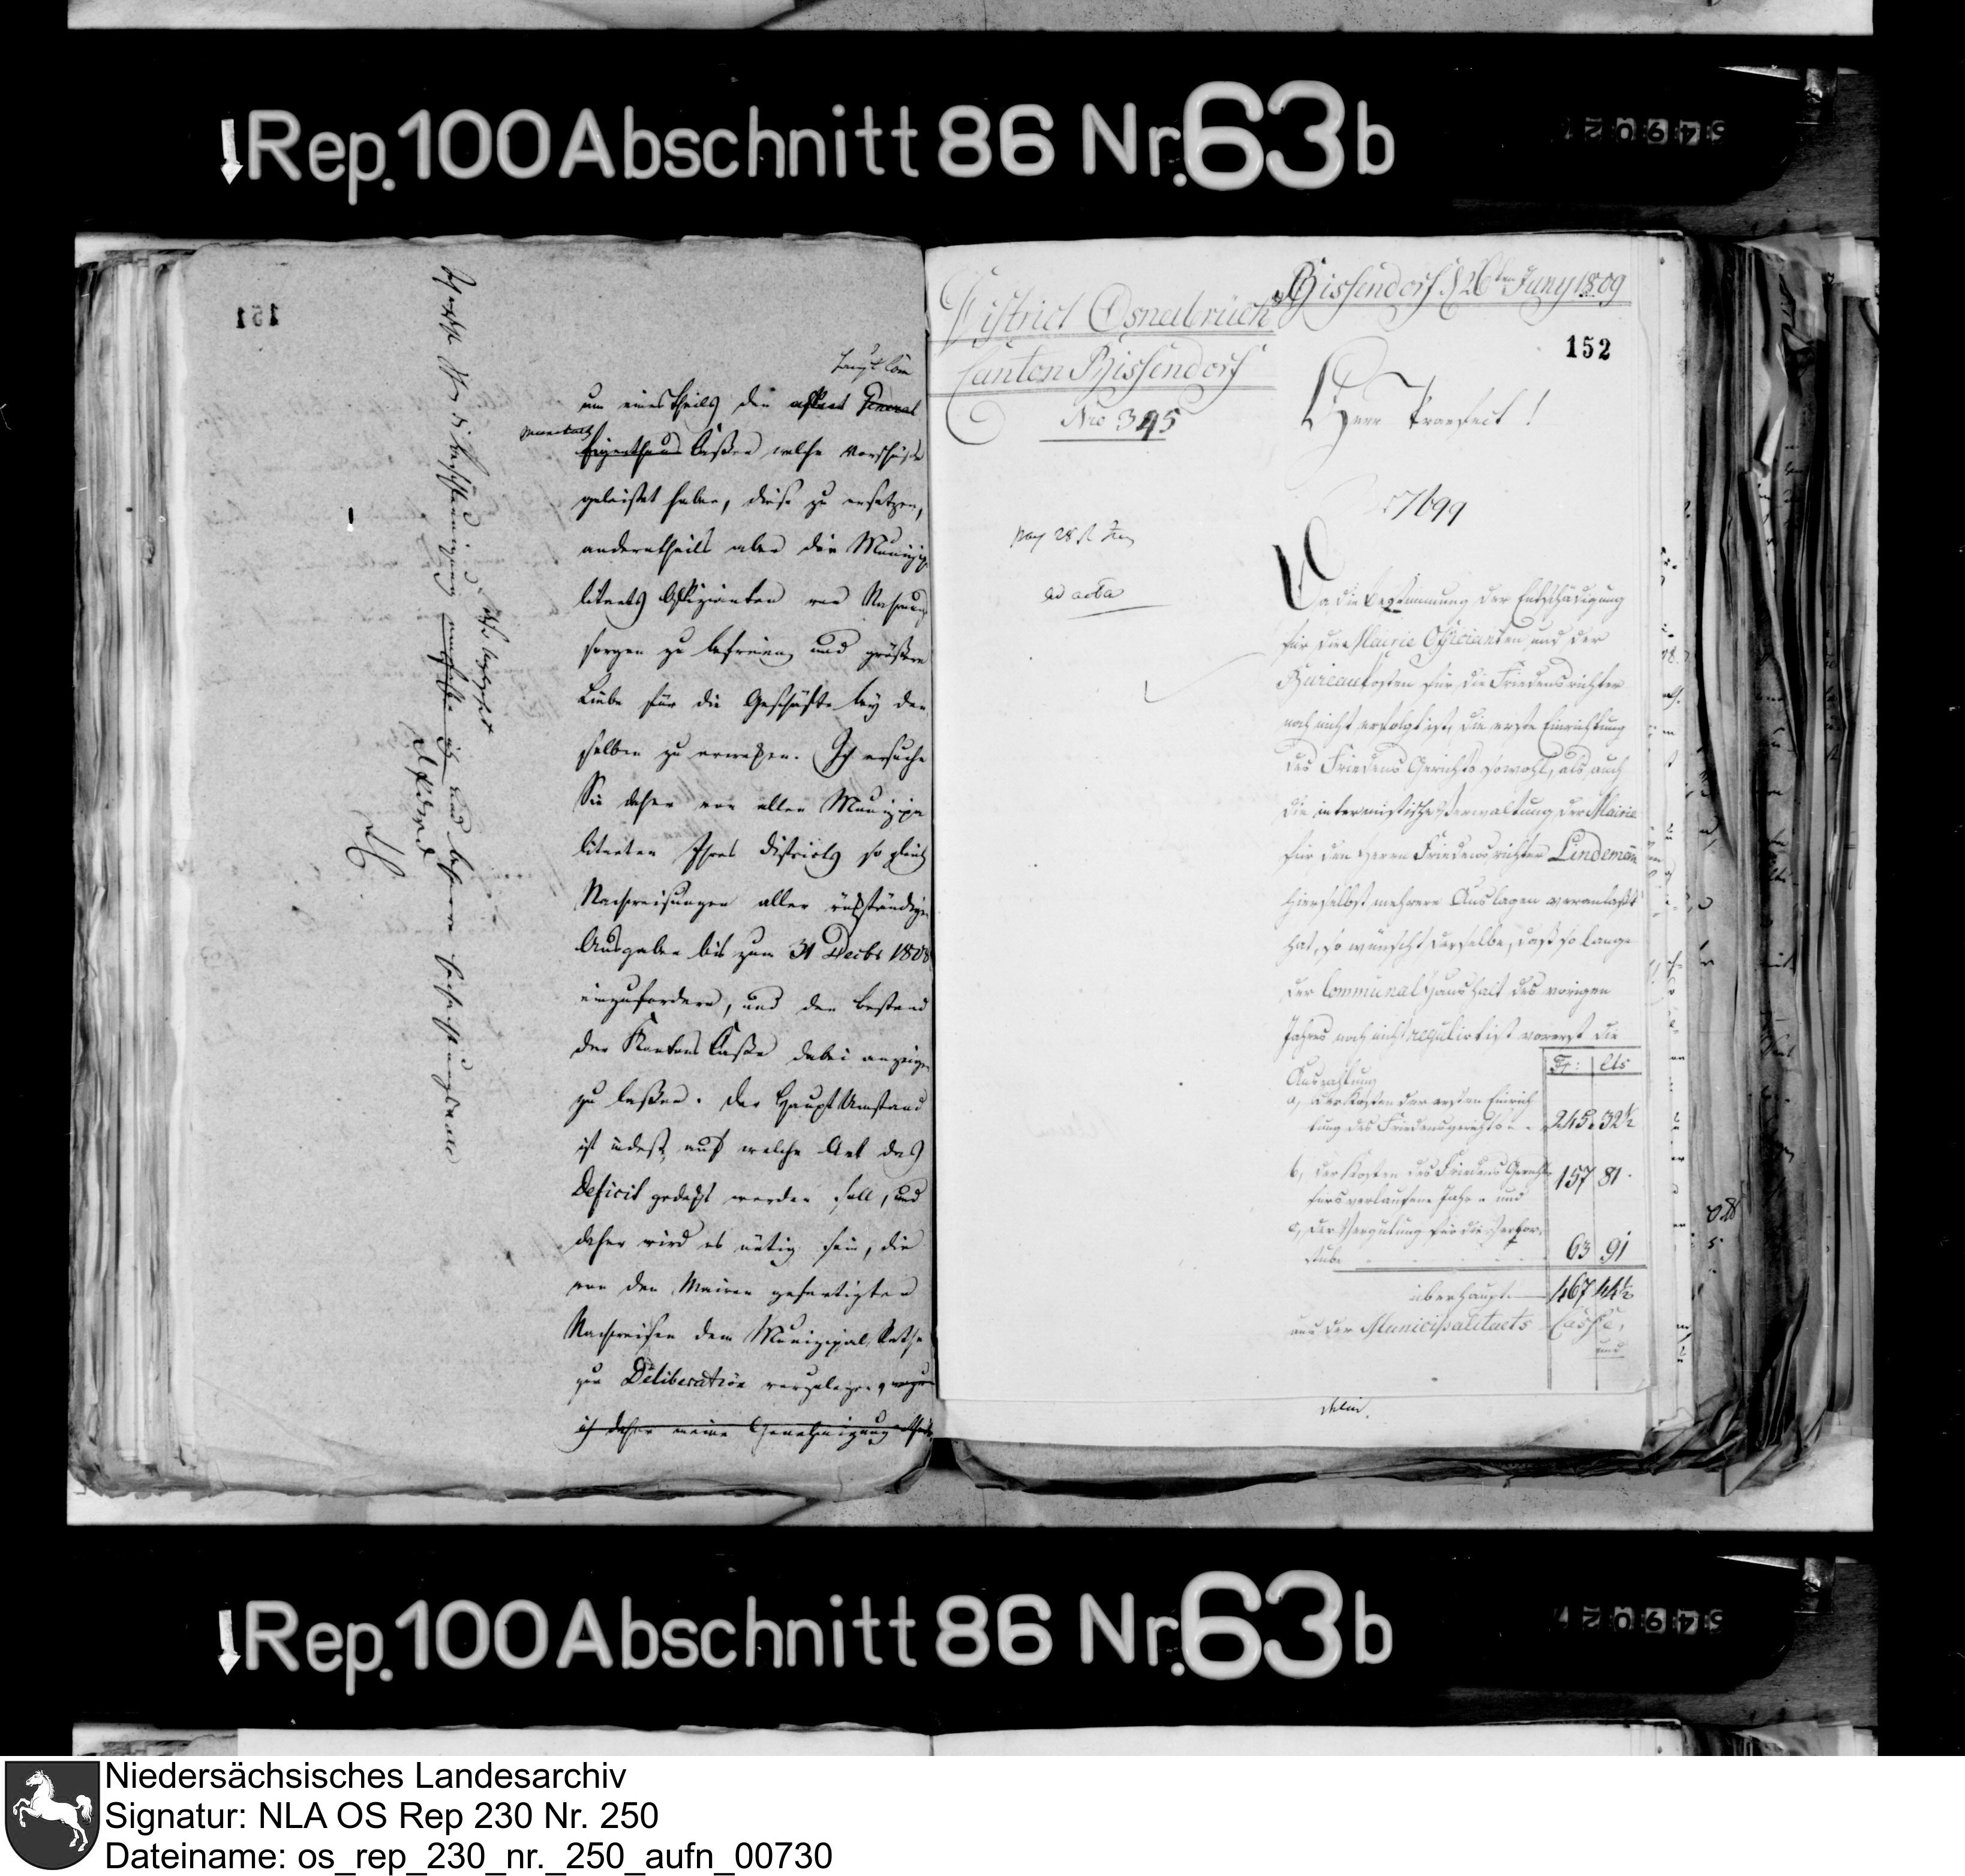 Rep. 100 Abschnitt 86 Nr. 63b
151
um eines theils den General
Cassen welche Vorschüsse
geleistet haben, diese zu ersetzen,
anderntheils aber die Munizipa
litaets Offizianten von Nahrungs
sorgen zu befreien und größere
Liebe für die Geschäfte bey den
selben zu erwecken. Ich ersuche
Sie daher von allen Munizipa
litaeten Ihres Districts so gleich
Nachweisungen aller rückständigen
Ausgaben bis zum 31 Decbr 1808
einzufordern, und den Bestand
der Kantons Casse dabei anzeigen
zu lassen. Der Haupt Umstand
ist indeß, auf welche Art das
Deficit gedeckt werden soll, und
daher wird es nötig sein, die
von den Mairen gefertigten
Nachweisen dem Munizipal Rathe
zur Deliberation vorzulegen,
ich daher meine Genehmigung
District Osnabrück
Canton Bissendorf
Nro 345
Bissendorf d 26ten Juny 1809
152
Herr Praefect!
17699
ad acta
Da die Bestimmung der Entschädigung
für die Mairie Officianten und der
Bureaukosten für die Friedensrichter
noch nicht erfolgt ist, die erste Einrichtung
des Friedens Gerichts sowohl, als auch
die intermistische Verwaltung der Mairie
für den Herrn Friedensrichter Lindemann
hierselbst mehrere Auslagen veranlaßt
hat, so wünscht derselbe, daß so lange
der Communal Haushalt des vorigen
Jahres noch nicht regulirt ist vorerst die
Auszahlung
Fr: Cts
a, der Kosten der ersten Einrich
tung des Friedensgerichts 245. 32½
b, der Kosten des Friedens Gerichts
fürs verlaufene Jahr und 157 81.
c, der Vergütung für die Verhör
stube 63 91
überhaupt 467 44½
aus der Municipalitaets Casse,
und
Rep. 100 Abschnitt 86 Nr. 63b
Niedersächsisches Landesarchiv
Signatur: NLA OS Rep 230 Nr. 250
Dateiname: os_rep_230_nr._250_aufn_00730